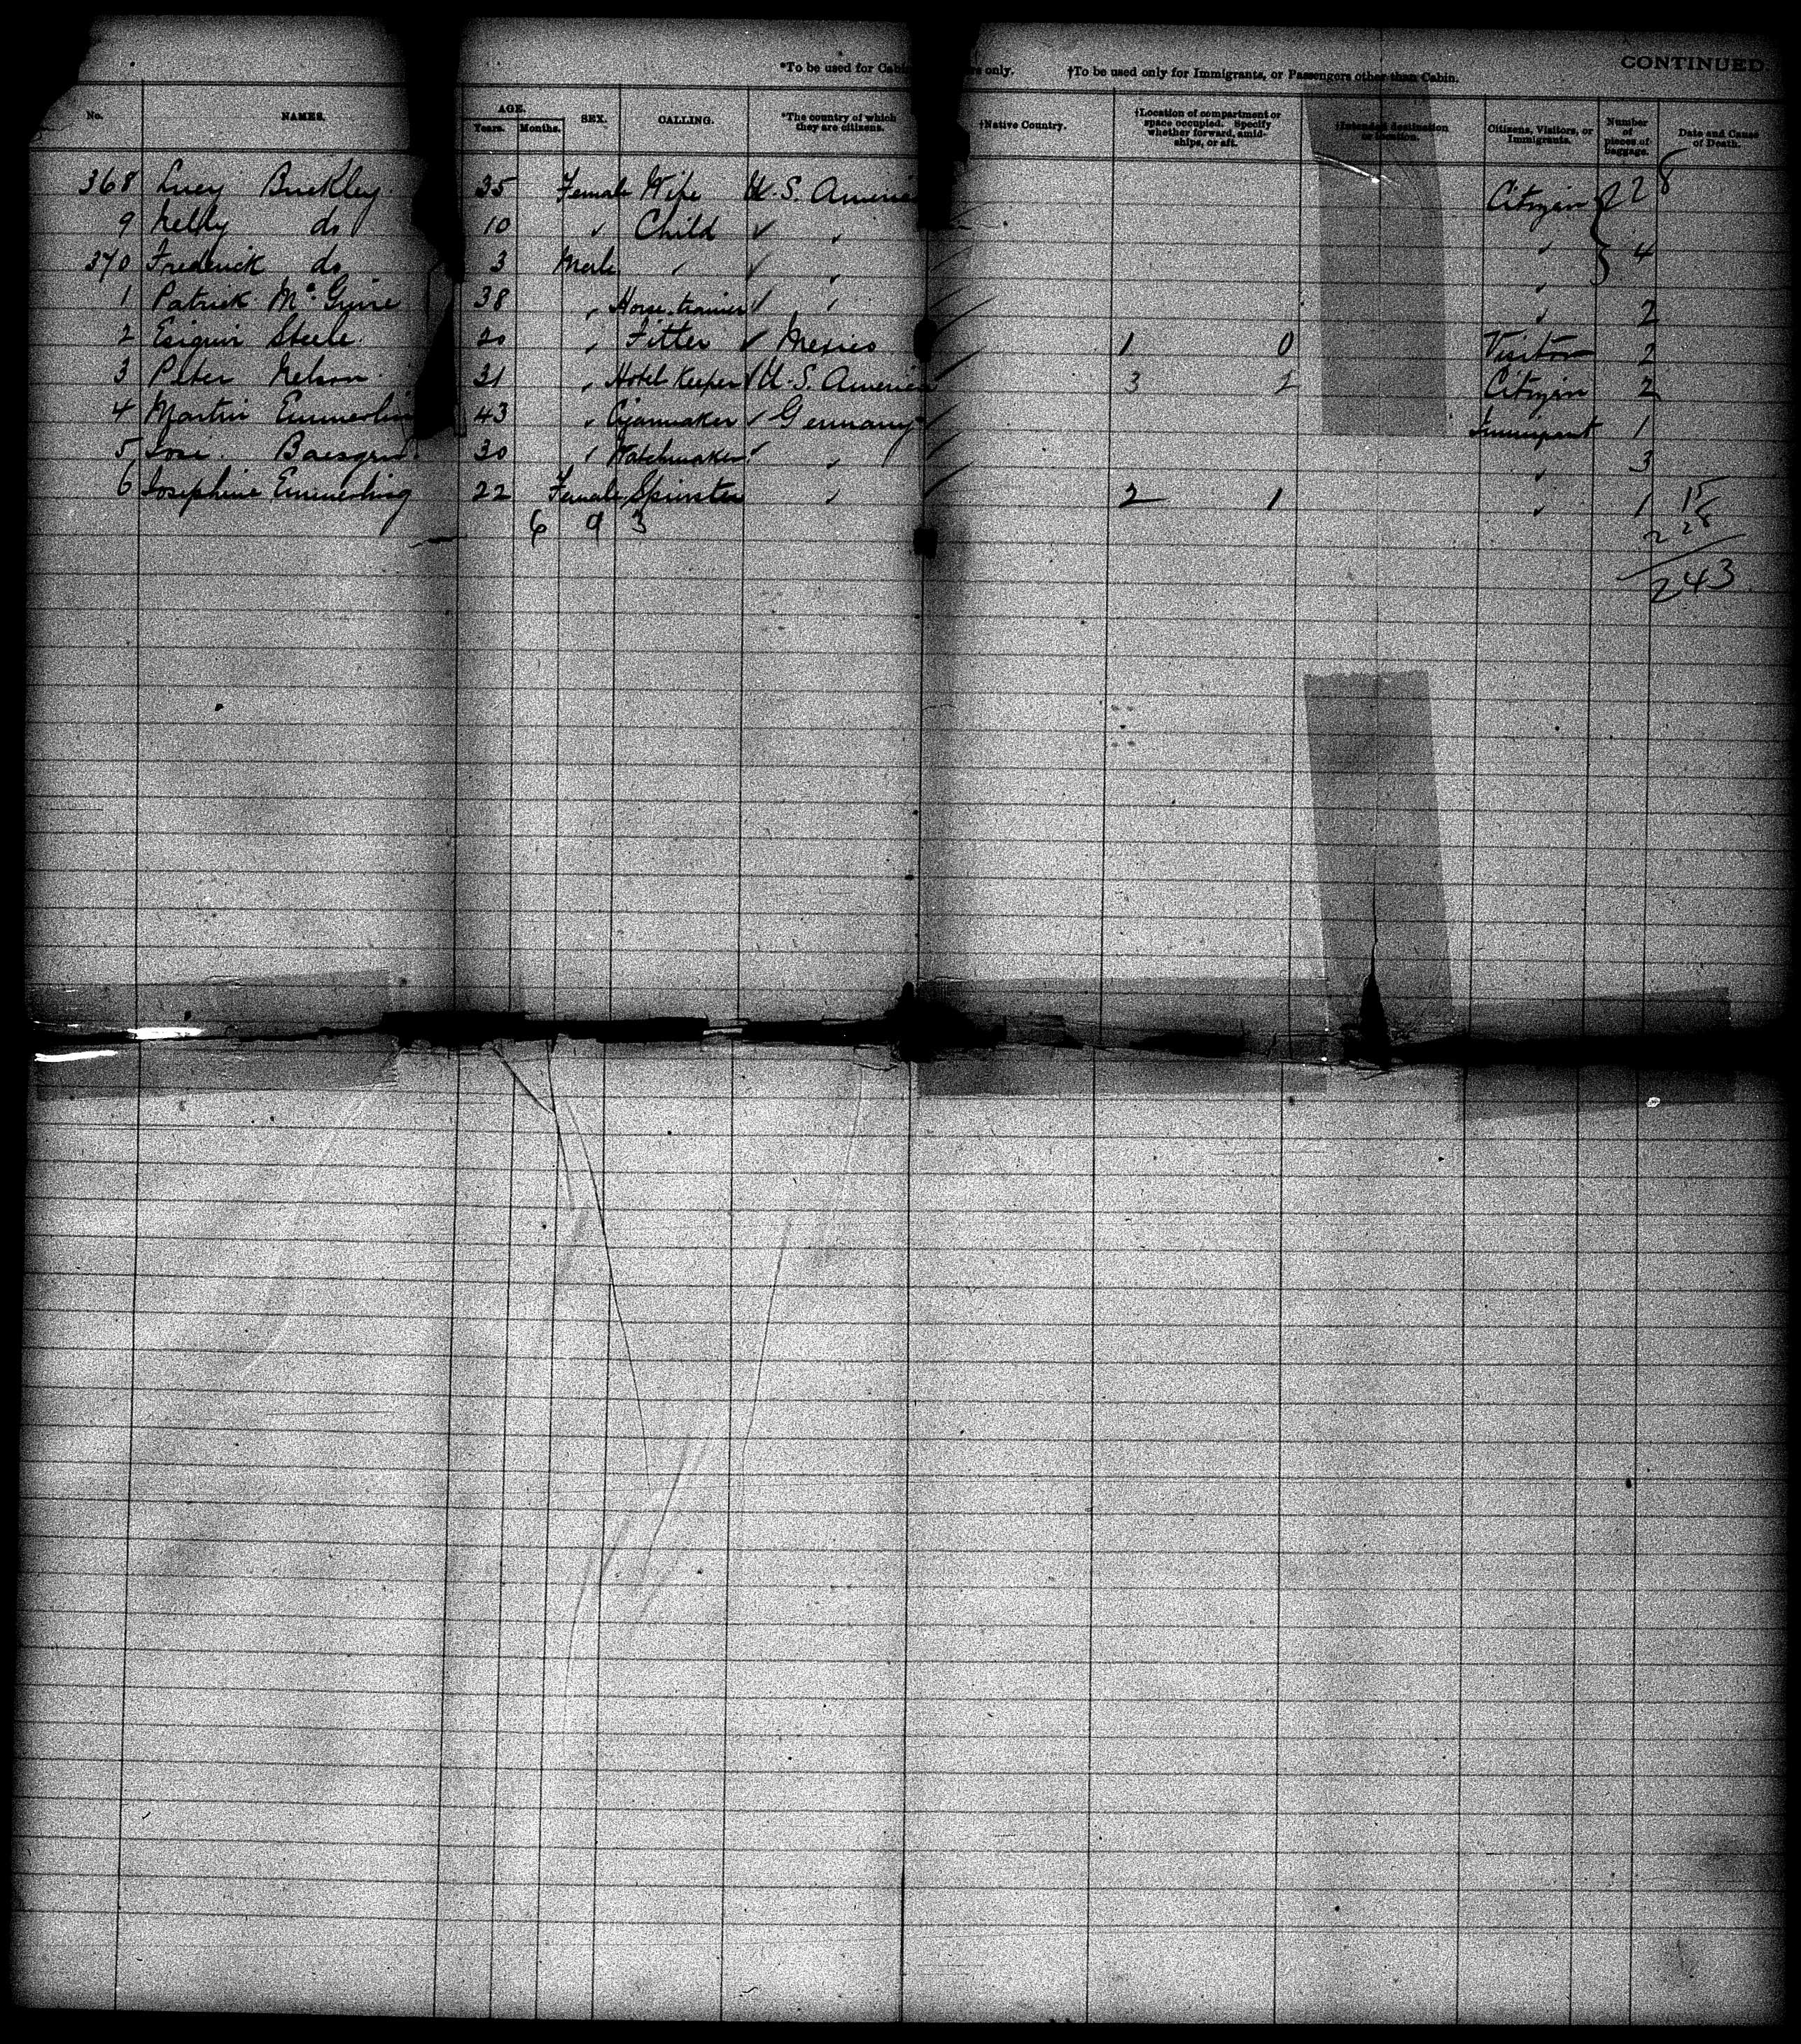 CONTINUED
*To be used for Cabin rs only. †To be used only for Immigrants, or Passengers other than Cabin.
No. NAMES. AGE. Years. Months. SEX. CALLING. *The country of which they are citizens. †Native Country. †Location of compartment or space occupied. Specify whether forward, amidships, or aft. †Intended destination or location. Citizens, Visitors, or Immigrants. Number of pieces of baggage. Date and Cause of Death.
368 Lucy Buckley 35 Female Wife U.S. America Citizen 228
9 Nelly do 10 " Child " " 4
370 Frederick do 3 Male " " "
1 Patrick McGuire 38 " Horse trainer " " 2
2 Steele 20 " Fitter Mexico 1 0 Visitor 2
3 Peter Nelson 31 " Hotel Keeper U.S. America 3 2 Citizen 2
4 Martin Emmerling 43 " Cigarmaker Germany Immigrant 1
5 30 " Watchmaker " " 3
6 Josephine Emmerling 22 Female Spinster " 2 1 " 1 15
6 9 3 228
243